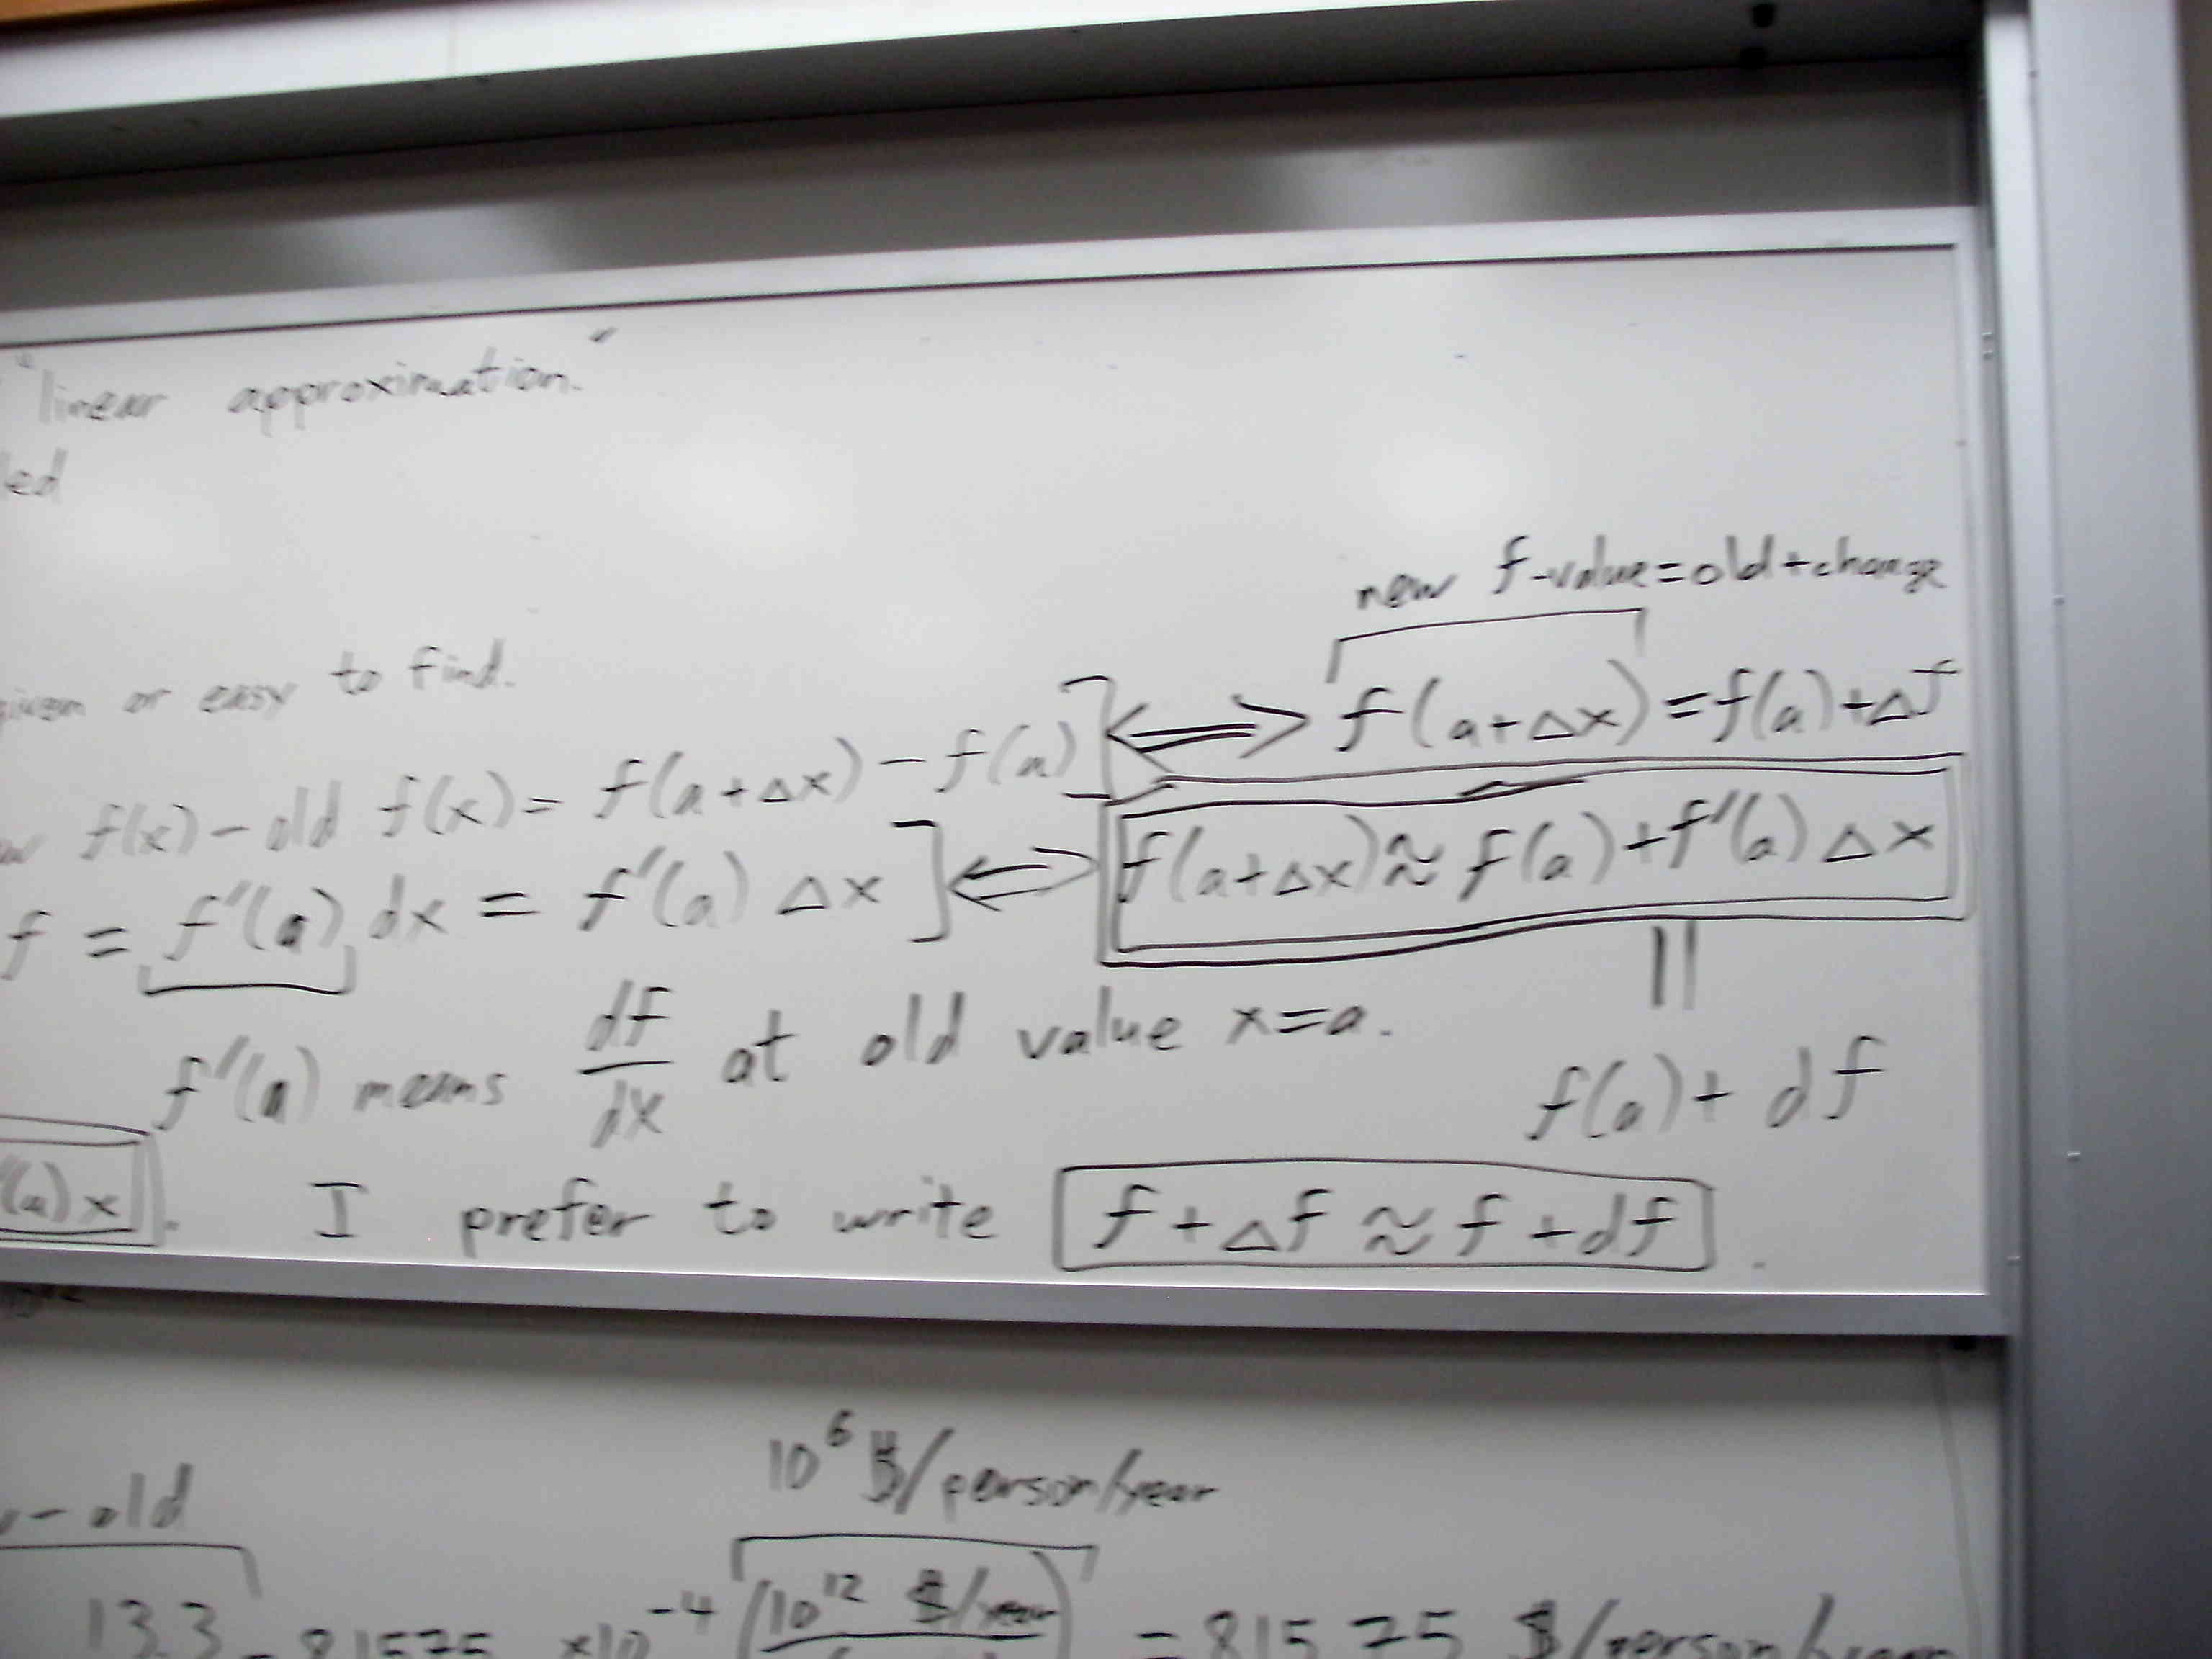 "linear approximation."
led
given or easy to find.
new f-value=old+change
f(x) - old f(x) = f(a+Δx) - f(a)] ⟺ f(a+Δx) = f(a)+Δf
f = f'(a) dx = f'(a) Δx] ⟺ f(a+Δx) ≈ f(a)+f'(a) Δx
||
f'(a) means df/dx at old value x=a.
f(a)+ df
'(a) x. I prefer to write f+Δf ≈ f+df.
10^6 $/person/year
- old
13.3 = 8.1575 ×10^-4 (10^12 $/year) = 815.75 $/person/year